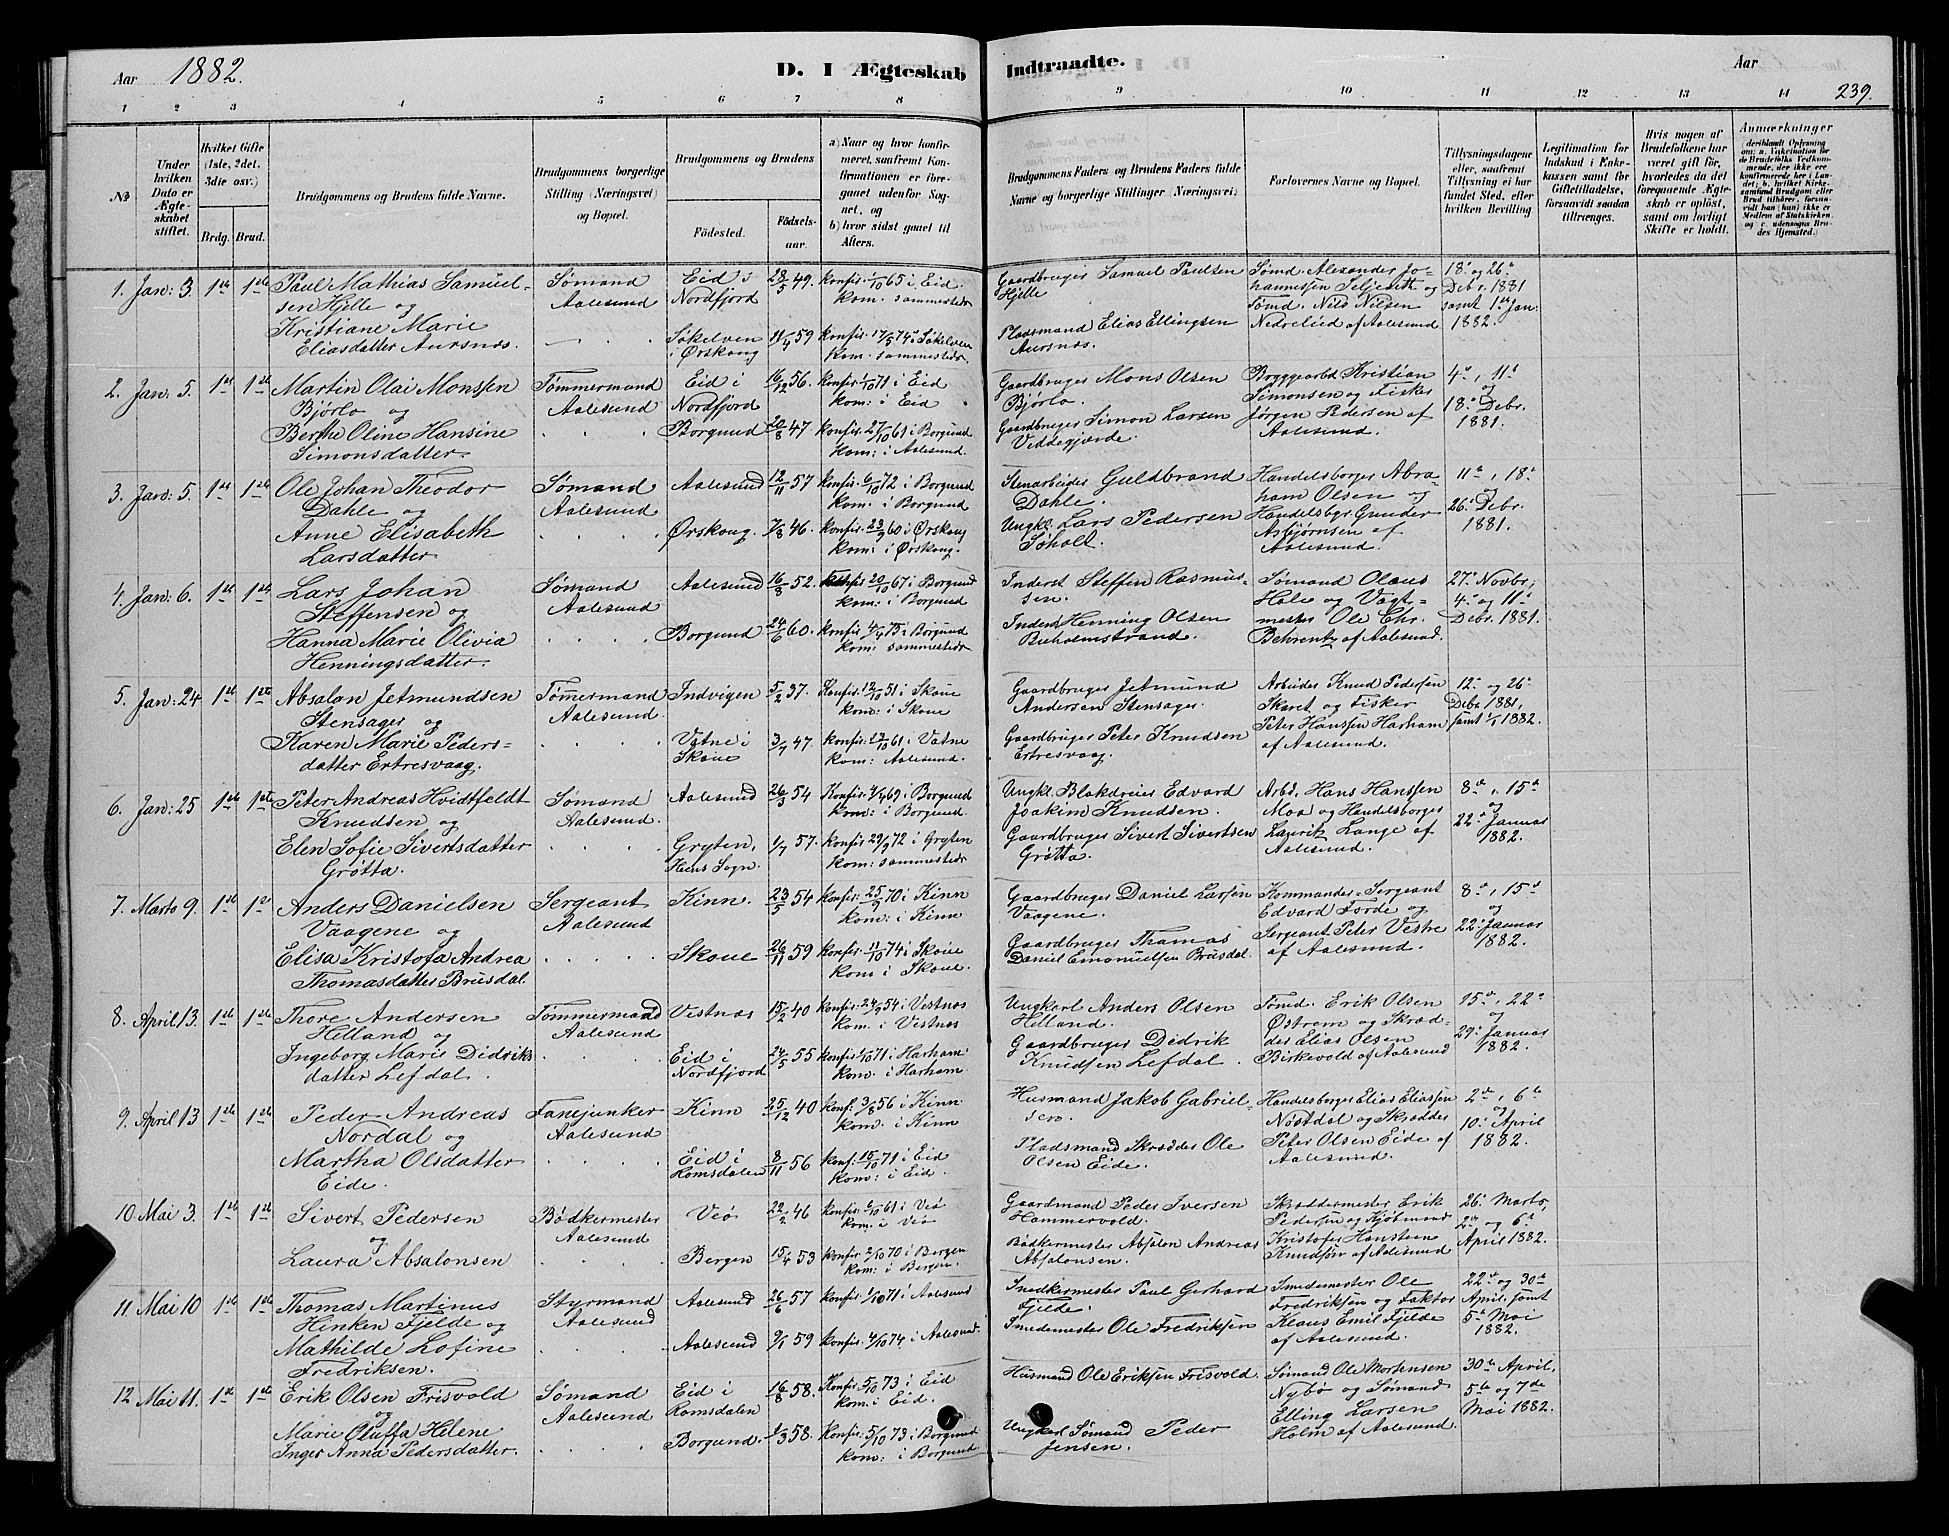 Aar 1882.
D. I Ægteskab Indtraadte.
Aar
239.
1 2 3 4 5 6 7 8 9 10 11 12 13 14
No
Under hvilken Dato er Ægteskabet stiftet.
Hvilket Gifte (1ste, 2det, 3die osv.)
Brdg. Brud.
Brudgommens og Brudens fulde Navne.
Brudgommens borgerlige Stilling (Næringsvei) og Bopæl.
Brudgommens og Brudens
Fødested.
Fødselsaar.
a) Naar og hvor konfirmeret, saafremt Konfirmationen er foregaaet udenfor Sognet, og
b) hvor sidst gaaet til Alters.
Brudgommens Faders og Brudens Faders fulde Navne og borgerlige Stillinger (Næringsvei)
Forlovernes Navne og Bopæl.
Tillysningsdagene eller, saafremt Tillysning ei har fundet Sted, efter hvilken Bevilling
Legitimation for Indskud i Enkekassen samt for Giftetilladelse, forsaavidt saadan tiltrænges.
Hvis nogen af Brudefolkene har været gift før, hvorledes da det foregaaende Ægteskab er opløst, samt om lovligt Skifte er holdt.
Anmærkninger
(deriblandt Oplysning om: a. Vakcination for de Brudefolks Vedkommende, der ikke ere konfirmerede her i Landet; b. hvilket Kirkesamfund Brudgom eller Brud tilhører, forsaavidt han (hun) ikke er Medlem af Statskirken, og c. udensogns Brudes Hjemsted.)
1. Jan: 3. 1ste 1ste Paul Mathias Samuel- Sømand Eid i 28/5 49. konfis: 1/10 65 i Eid Gaardbruger Samuel Paulsen Sømd. Alexander Jo- 18de og 26de
sen Hjelle og Aalesund Nordfjord kom. sammesteds Hjelle hannessen Seljesett og Debr. 1881
Kristiane Marie Søkelven 11/4 59 konfis: 17/5 74 i Søkelven Pladsmand Elias Ellingsen Tømd. Nils Nilsen samt 1ste Jan:
Eliasdatter Aursnæs. i Ørskoug kom. sammesteds, Aursnæs. Nedrelied af Aalesund 1882.
2. Jan: 5. 1ste 1ste Martin Olai Monssen Tømmermand Eid i 16/12 56. konfis: 1/10 71 i Eid Gaardbruger Mons Olsen Bryggearbd Kristian 4de, 11de
Bjørlo og Aalesund Nordfjord kom: i Eid Bjørlo. Simonsen og Fisker og
Berthe Oline Hansine Borgund 20/8 47 konfis. 27/10 61 i Borgund Gaardbruger Simon Larsen Jørgen Pedersen af 18de Debr.
Simonsdatter. kom: i Aalesund. Viddegjærde. Aalesund. 1881.
3. Janv: 5. 1ste 1ste Ole Johan Theodor Sømand Aalesund 12/11 57 konfis. 6/10 72 i Borgund Stenarbeider Guldbrand Handelsborger Abra- 11te, 18de
Dahle og Aalesund kom: i Borgund Dahle. ham Olsen og og
Anne Elisabeth Ørskoug. 7/8 46. konfis: 23/9 60 i Ørskoug Ungkl. Lars Pedersen Handelsbgr Gunder 26de Debr.
Larsdatter kom: i Ørskoug. Søholt. Asbjørnsen af Aalesund. 1881.
4. Jan: 6. 1ste 1ste Lars Johan Sømand Aalesund 16/8 52. konfis 20/10 67 i Borgund Inderst Steffen Rasmus- Sømand Olaus 27de Novbr;
Steffensen og Aalesund kom: i Borgund sen. Hole og Vagt- 4de og 11te
Hanna Marie Olivia Borgund 24/6 60. konfis 4/4 75 i Borgund Inderst Henning Olsen mester Ole Chr. Debr. 1881.
Henningsdatter. kom: sammesteds Buholmstrand. Behrentz af Aalesund.
5. Jan: 24 1ste 1ste Absalon Jetmundsen Tømmermand Indvigen 5/2 37. Konfis: 12/10 51 i Skoue Gaardbruger Jetmund Arbeider Knud Pedersen 12te og 26de
Stensager og Aalesund. kom: i Skoue Andersen Stensager. Skaret og Fisker Debr 1881,
Karen Marie Peders- Vatne i 3/7 47. konfis: 27/10 61 i Vatne Gaardbruger Peter Knudsen Peter Hanssen Harham samt 1/1 1882.
datter Ertresvaag. Skoue kom: Aalesund. Ertresvaag. af Aalesund.
6. Jan: 25 1ste 1ste Peter Andreas Hvidtfeldt Sømand Aalesund 26/3 54 Konfis: 4/4 69 i Borgund Ungkl. Blokdreier Edvard Arbd. Hans Hanssen 8de, 15de
Knudsen og Aalesund. kom: i Borgund. Joakim Knudsen. Moa og Handelsborger og
Elen Sofie Sivertsdatter Gryten, 1/7 57. konfis: 29/9 72 i Gryten Gaardbruger Sivert Sivertsen Laurik Lange af 22de Januar
Grøtta. Hens Sogn. kom: sammesteds Grøtta. Aalesund. 1882.
7. Marts 9. 1ste 1ste Anders Danielsen Sergeant Kinn. 23/5 54 konfis: 25/9 70 i Kinn Gaardbruger Daniel Larsen Kommander-Sergeant 8de, 15de
Vaagene og Aalesund kom: i Kinn Vaagene. Edvard Førde og og
Elisa Kristofa Andrea Skoue 26/11 59 konfis. 11/10 74 i Skoue Gaardbruger Thomas Sergeant Peter Vestre 22de Januar
Thomasdatter Brusdal. kom i Skoue. Daniel Emanuelsen Brusdal. af Aalesund. 1882.
8. April 13. 1ste 1ste Thore Andersen Tømmermand Vestnæs 15/2 40 konfis: 24/9 54 i Vestnæs Ungkarl Anders Olsen Tømd. Erik Olsen 15de, 22de
Helland og Aalesund kom. i Vestnæs Helland. Østrem og Skræd- og
Ingeborg Marie Didriks Eid i 24/5 55 konfis 1/10 71 i Harham Gaardbruger Didrik der Elias Olsen 29de Januar
datter Lefdal. Nordfjord kom. i Harham. Knudsen Lefdal. Birkevold af Aalesund 1882.
9. April 13 1ste 1ste Peder Andreas Fanejunker Kinn 25/12 40 konf. 3/8 56 i Kinn Husmand Jakob Gabriel- Handelsborger Elias Eliassen 2den, 6te
Nordal og Aalesund kom. i Kinn sen Nordal og Skrædder og 10de April
Martha Olsdatter Eid i 8/11 56 konf: 15/10 71 i Eid Pladsmand Skrædder Ole Peter Olsen Eide af 1882.
Eide. Romsdalen kom: i Eid. Olsen Eide. Aalesund.
10. Mai 3. 1ste 1ste Sivert Pedersen Bødkermester Veø 22/2 46 konfis 6/10 61 i Veø Gaardmand Peder Iversen Skræddermester Erik 26de Marts,
og Aalesund kom. i Veø Hammervold. Pedersen og Kjøbmand 2den og 6te
Laura Absalonsen Bergen 15/4 53 konfis 2/10 70 i Bergen Bødkermester Absalon Andreas Kristofer Hanstein April 1882.
kom: i Bergen. Absalonsen. Knudsøn af Aalesund
11 Mai 10 1ste 1ste Thomas Martinus Styrmand Aalesund 26/6 57 konfis 1/10 71 i Aalesund Snedkermester Paul Gerhard Smedemester Ole 22de og 30te
Hinken Fjelde og Aalesund Fjelde. Fredriksen og Faktor April samt
Mathilde Lofine Aalesund 9/1 59 konfis 4/10 74 i Aalesund. Smedemester Ole Fredriksen Klaus Emil Fjelde 5te Mai
Fredriksen. af Aalesund. 1882.
12 Mai 11. 1ste 1ste Erik Olsen Frisvold Sømand Eid i 16/8 58. Konfis: 5/10 73 i Eid Husmand Ole Eriksen Frisvold. Sømand Ole Mortensen 30te April,
og Aalesund Romsdalen kom. i Eid. Nybø og Sømand 5te og 7de
Marie Oluffa Helene Borgund. 1/3 58. Konfis: 5/10 73 i Borgund Ungkarl Sømand Peder Elling Larsen Mai 1882.
Inger Anna Pedersdatter. kom: i Borgund Jensen. Holm af Aalesund